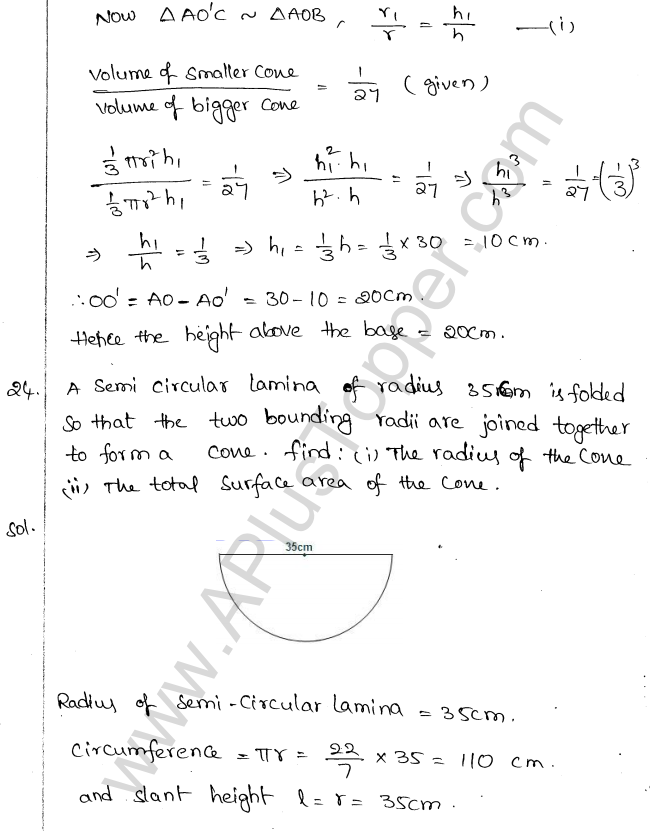 Now △AO'C ~ △AOB, r₁/r = h₁/h —(i)
volume of smaller cone / volume of bigger cone = 1/27 (given)
1/3 πr₁² h₁ / 1/3 πr² h₁ = 1/27 ⇒ h₁²·h₁ / h²·h = 1/27 ⇒ h₁³/h³ = 1/27 = (1/3)³
⇒ h₁/h = 1/3 ⇒ h₁ = 1/3 h = 1/3 × 30 = 10cm.
∴ OO' = AO - AO' = 30 - 10 = 20cm.
Hence the height above the base = 20cm.
24. A semi circular lamina of radius 35cm is folded
so that the two bounding radii are joined together
to form a cone. find: (i) The radius of the cone
(ii) The total surface area of the cone.
Sol.
35cm
Radius of semi-circular lamina = 35cm.
Circumference = πr = 22/7 × 35 = 110 cm.
and slant height l = r = 35cm.
www.APlusTopper.com